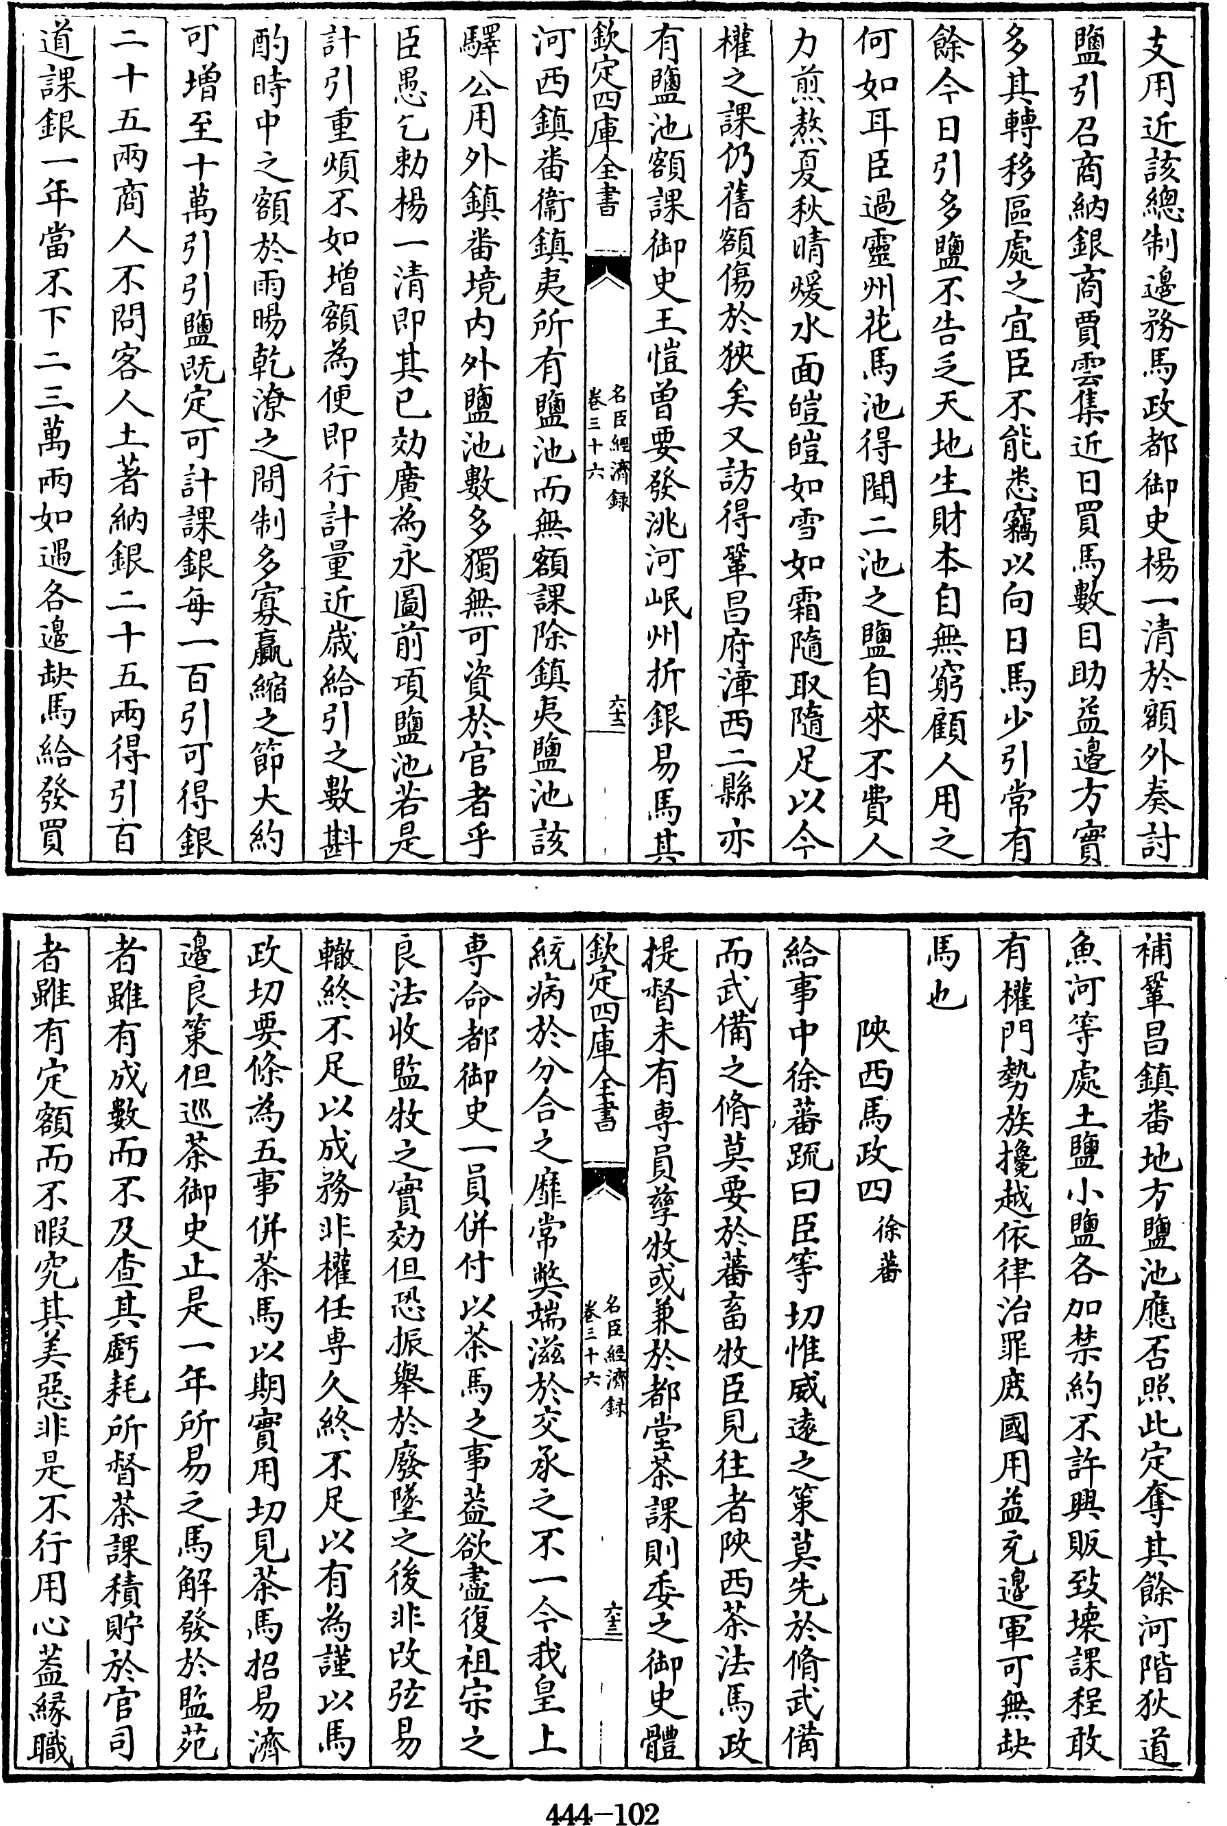 支用近該總制邊務馬政都御史楊一清於額外奏討
鹽引召商納銀商賈雲集近日買馬數目助益邊方實
多其轉移區處之宜臣不能悉竊以向日馬少引常有
餘今日引多鹽不告乏天地生財本自無窮顧人用之
何如耳臣過靈州花馬池得聞二池之鹽自來不費人
力煎熬夏秋晴煖水面皚皚如雪如霜隨取隨足以今
權之課仍舊額傷於狹矣又訪得鞏昌府漳西二縣亦
有鹽池額課御史王愷曾要發洮河岷州折銀易馬其
欽定四庫全書
名臣經濟録
卷三十六
六十二
河西鎮番衞鎮夷所有鹽池而無額課除鎮夷鹽池該
驛公用外鎮番境内外鹽池數多獨無可資於官者乎
臣愚乞勅楊一清即其已効廣為永圖前項鹽池若是
計引重煩不如增額為便即行計量近歳給引之數斟
酌時中之額於雨暘乾潦之間制多寡贏縮之節大約
可增至十萬引引鹽既定可計課銀每一百引可得銀
二十五兩商人不問客人土著納銀二十五兩得引百
道課銀一年當不下二三萬兩如遇各邊缺馬給發買
補鞏昌鎮番地方鹽池應否照此定奪其餘河階狄道
魚河等處土鹽小鹽各加禁約不許興販致壊課程敢
有權門勢族攙越依律治罪庻國用益充邊軍可無缺
馬也
陜西馬政四 徐蕃
給事中徐蕃疏曰臣等切惟威遠之策莫先於脩武備
而武備之脩莫要於蕃畜牧臣見往者陜西茶法馬政
提督未有専員孳牧或兼於都堂茶課則委之御史體
欽定四庫全書
名臣經濟録
卷三十六
六十三
統病於分合之靡常獘端滋於交承之不一今我皇上
専命都御史一員併付以茶馬之事葢欲盡復祖宗之
良法收監牧之實効但恐振舉於廢墜之後非改弦易
轍終不足以成務非權任専久終不足以有為謹以馬
政切要條為五事併茶馬以期實用切見茶馬招易濟
邊良策但巡茶御史止是一年所易之馬解發於監苑
者雖有成數而不及查其虧耗所督茶課積貯於官司
者雖有定額而不暇究其美惡非是不行用心葢縁職
444-102